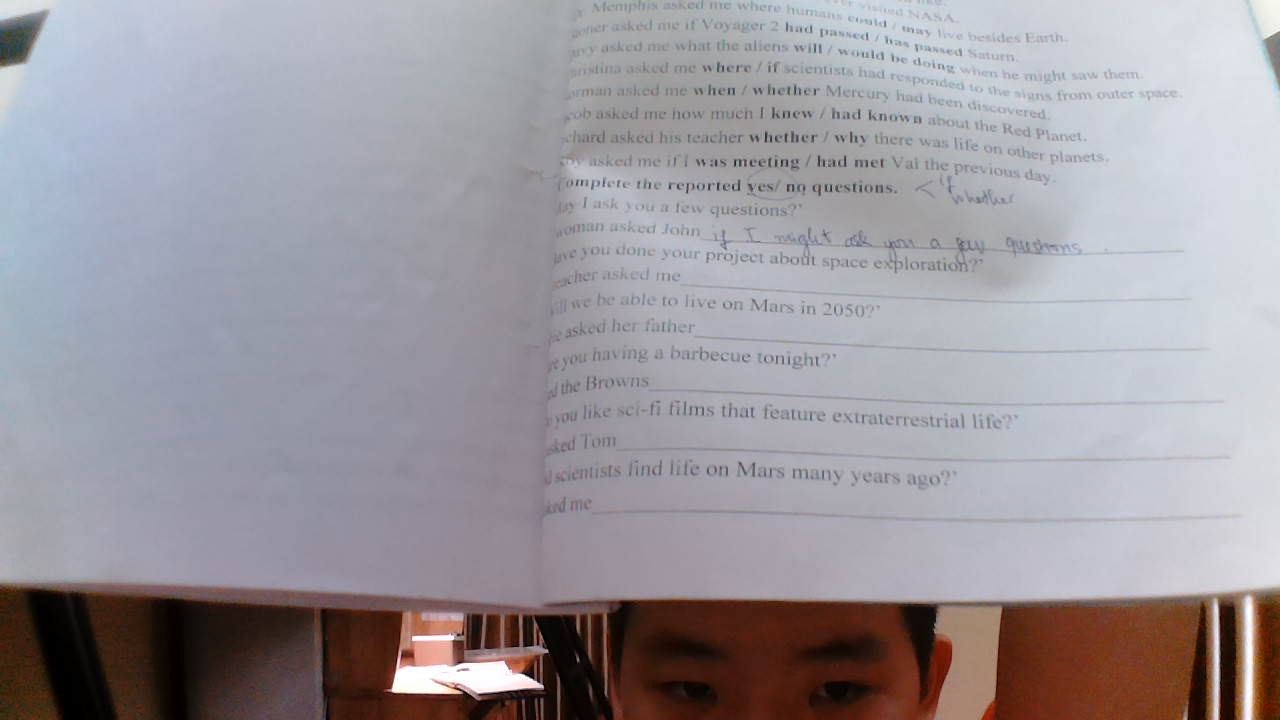 Memphis asked me where humans could / may live besides Earth.
asked me if Voyager 2 had passed / has passed Saturn.
asked me what the aliens will / would be doing when he might saw them.
asked me where / if scientists had responded to the signs from outer space.
asked me when / whether Mercury had been discovered.
asked me how much I knew / had known about the Red Planet.
asked his teacher whether / why there was life on other planets.
asked me if I was meeting / had met Val the previous day.
omplete the reported yes/ no questions. < if
whether
I ask you a few questions?'
woman asked John if I might ask you a few questions .
ave you done your project about space exploration?'
eacher asked me
we be able to live on Mars in 2050?'
asked her father
e you having a barbecue tonight?'
the Browns
you like sci-fi films that feature extraterrestrial life?'
sked Tom
scientists find life on Mars many years ago?'
ked me